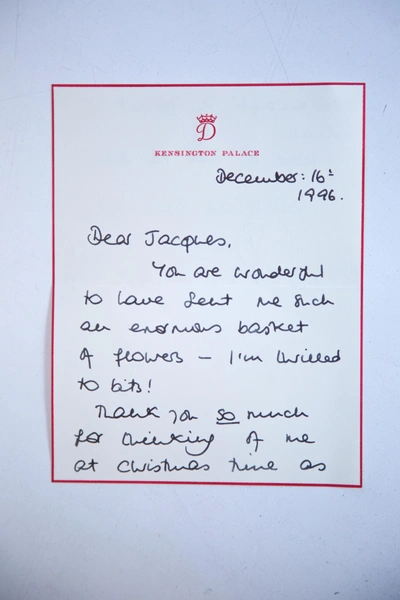 D
KENSINGTON PALACE
December: 16th
1996.
Dear Jacques,
You are wonderful
to have sent me such
an enormous basket
of flowers – I'm thrilled
to bits!
Thank you so much
for thinking of me
at Christmas time as